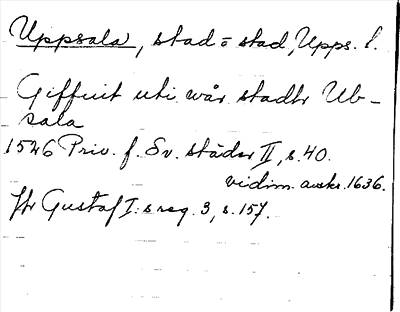 Uppsala, stad o stad, Upps. l.
Giffuit uti wår stadh Ub-
sala
1546 Priv. f. Sv. städer II, s. 40.
vidim. avskr. 1636.
Jfr Gustaf I:s reg. 3, s. 157.